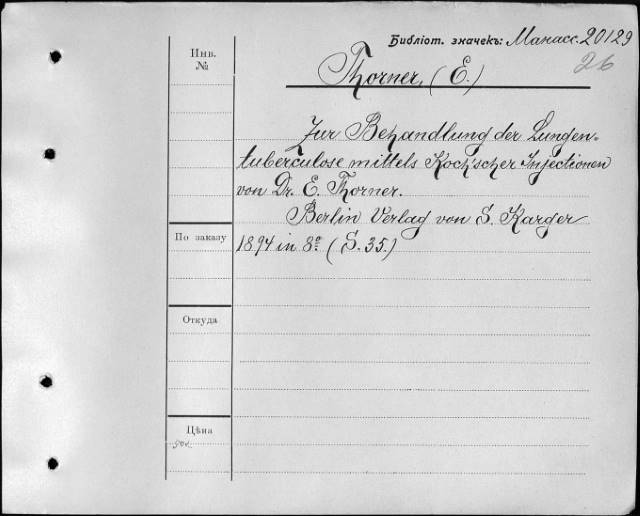 Библіот. значекъ: Манасс. 20129
26
Инв.
№
Thorner, (E.)
Zur Behandlung der Lungen-
tuberculose mittels Koch'scher Injectionen
von Dr. E. Thorner.
Berlin Verlag von S. Karger
По заказу
1894 in 8° (S. 35.)
Откуда
Цѣна